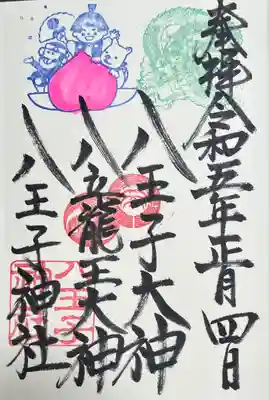 奉拝 令和五年正月四日
八王子大神
八大龍王大神
八王子神社